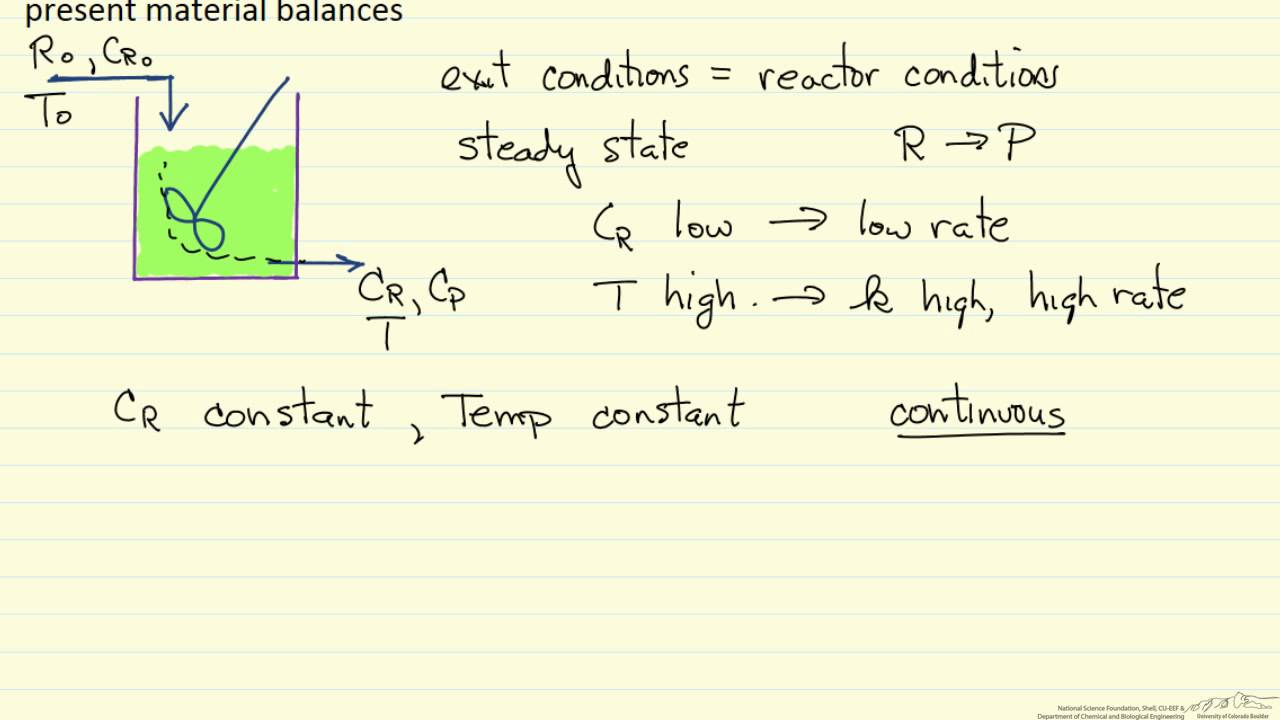 present material balances
R₀, C_R₀
T₀
exit conditions = reactor conditions
steady state R → P
C_R low → low rate
T high. → k high, high rate
C_R, C_P
T
C_R constant, Temp constant continuous
National Science Foundation, Shell, CU-EEF &
Department of Chemical and Biological Engineering
University of Colorado Boulder